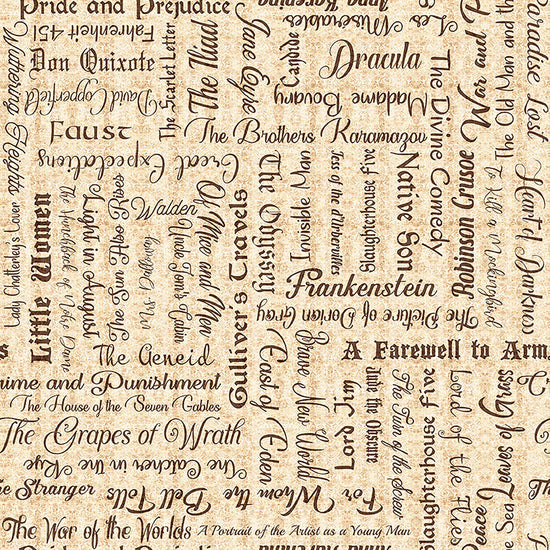 Pride and Prejudice
Anna Karenina
Les Miserables
Les
Fahrenheit 451
Wuthering Heights
Don Quixote
David Copperfield
The Scarlet Letter
The Iliad
Jane Eyre
Candide
Dracula
Madame Bovary
The Divine Comedy
War and P
The Old Man and the
Paradise Lost
Faust
The Brothers Karamazov
Great Expectations
Lady Chatterley's Lover
Little Women
The Hunchback of Notre Dame
Light in August
The Sun Also Rises
Walden
Mrs Dalloway
Uncle Tom's Cabin
Of Mice and Men
Gulliver's Travels
The Odyssey
Invisible Man
Tess of the d'Urbervilles
Slaughterhouse Five
Native Son
Robinson Crusoe
To Kill a Mockingbird
Heart of Darkness
Frankenstein
The Picture of Dorian Gray
s
The Aeneid
A Farewell to Arm
rime and Punishment
The House of the Seven Gables
The Grapes of Wrath
The Catcher in the Rye
he Stranger
For Whom the Bell Tolls
East of Eden
Brave New World
Lord Jim
The Turn of the Screw
Slaughterhouse Five
Lord of the Flies
Peace
Leaves of Grass
e Sea
The War of the Worlds
A Portrait of the Artist as a Young Man